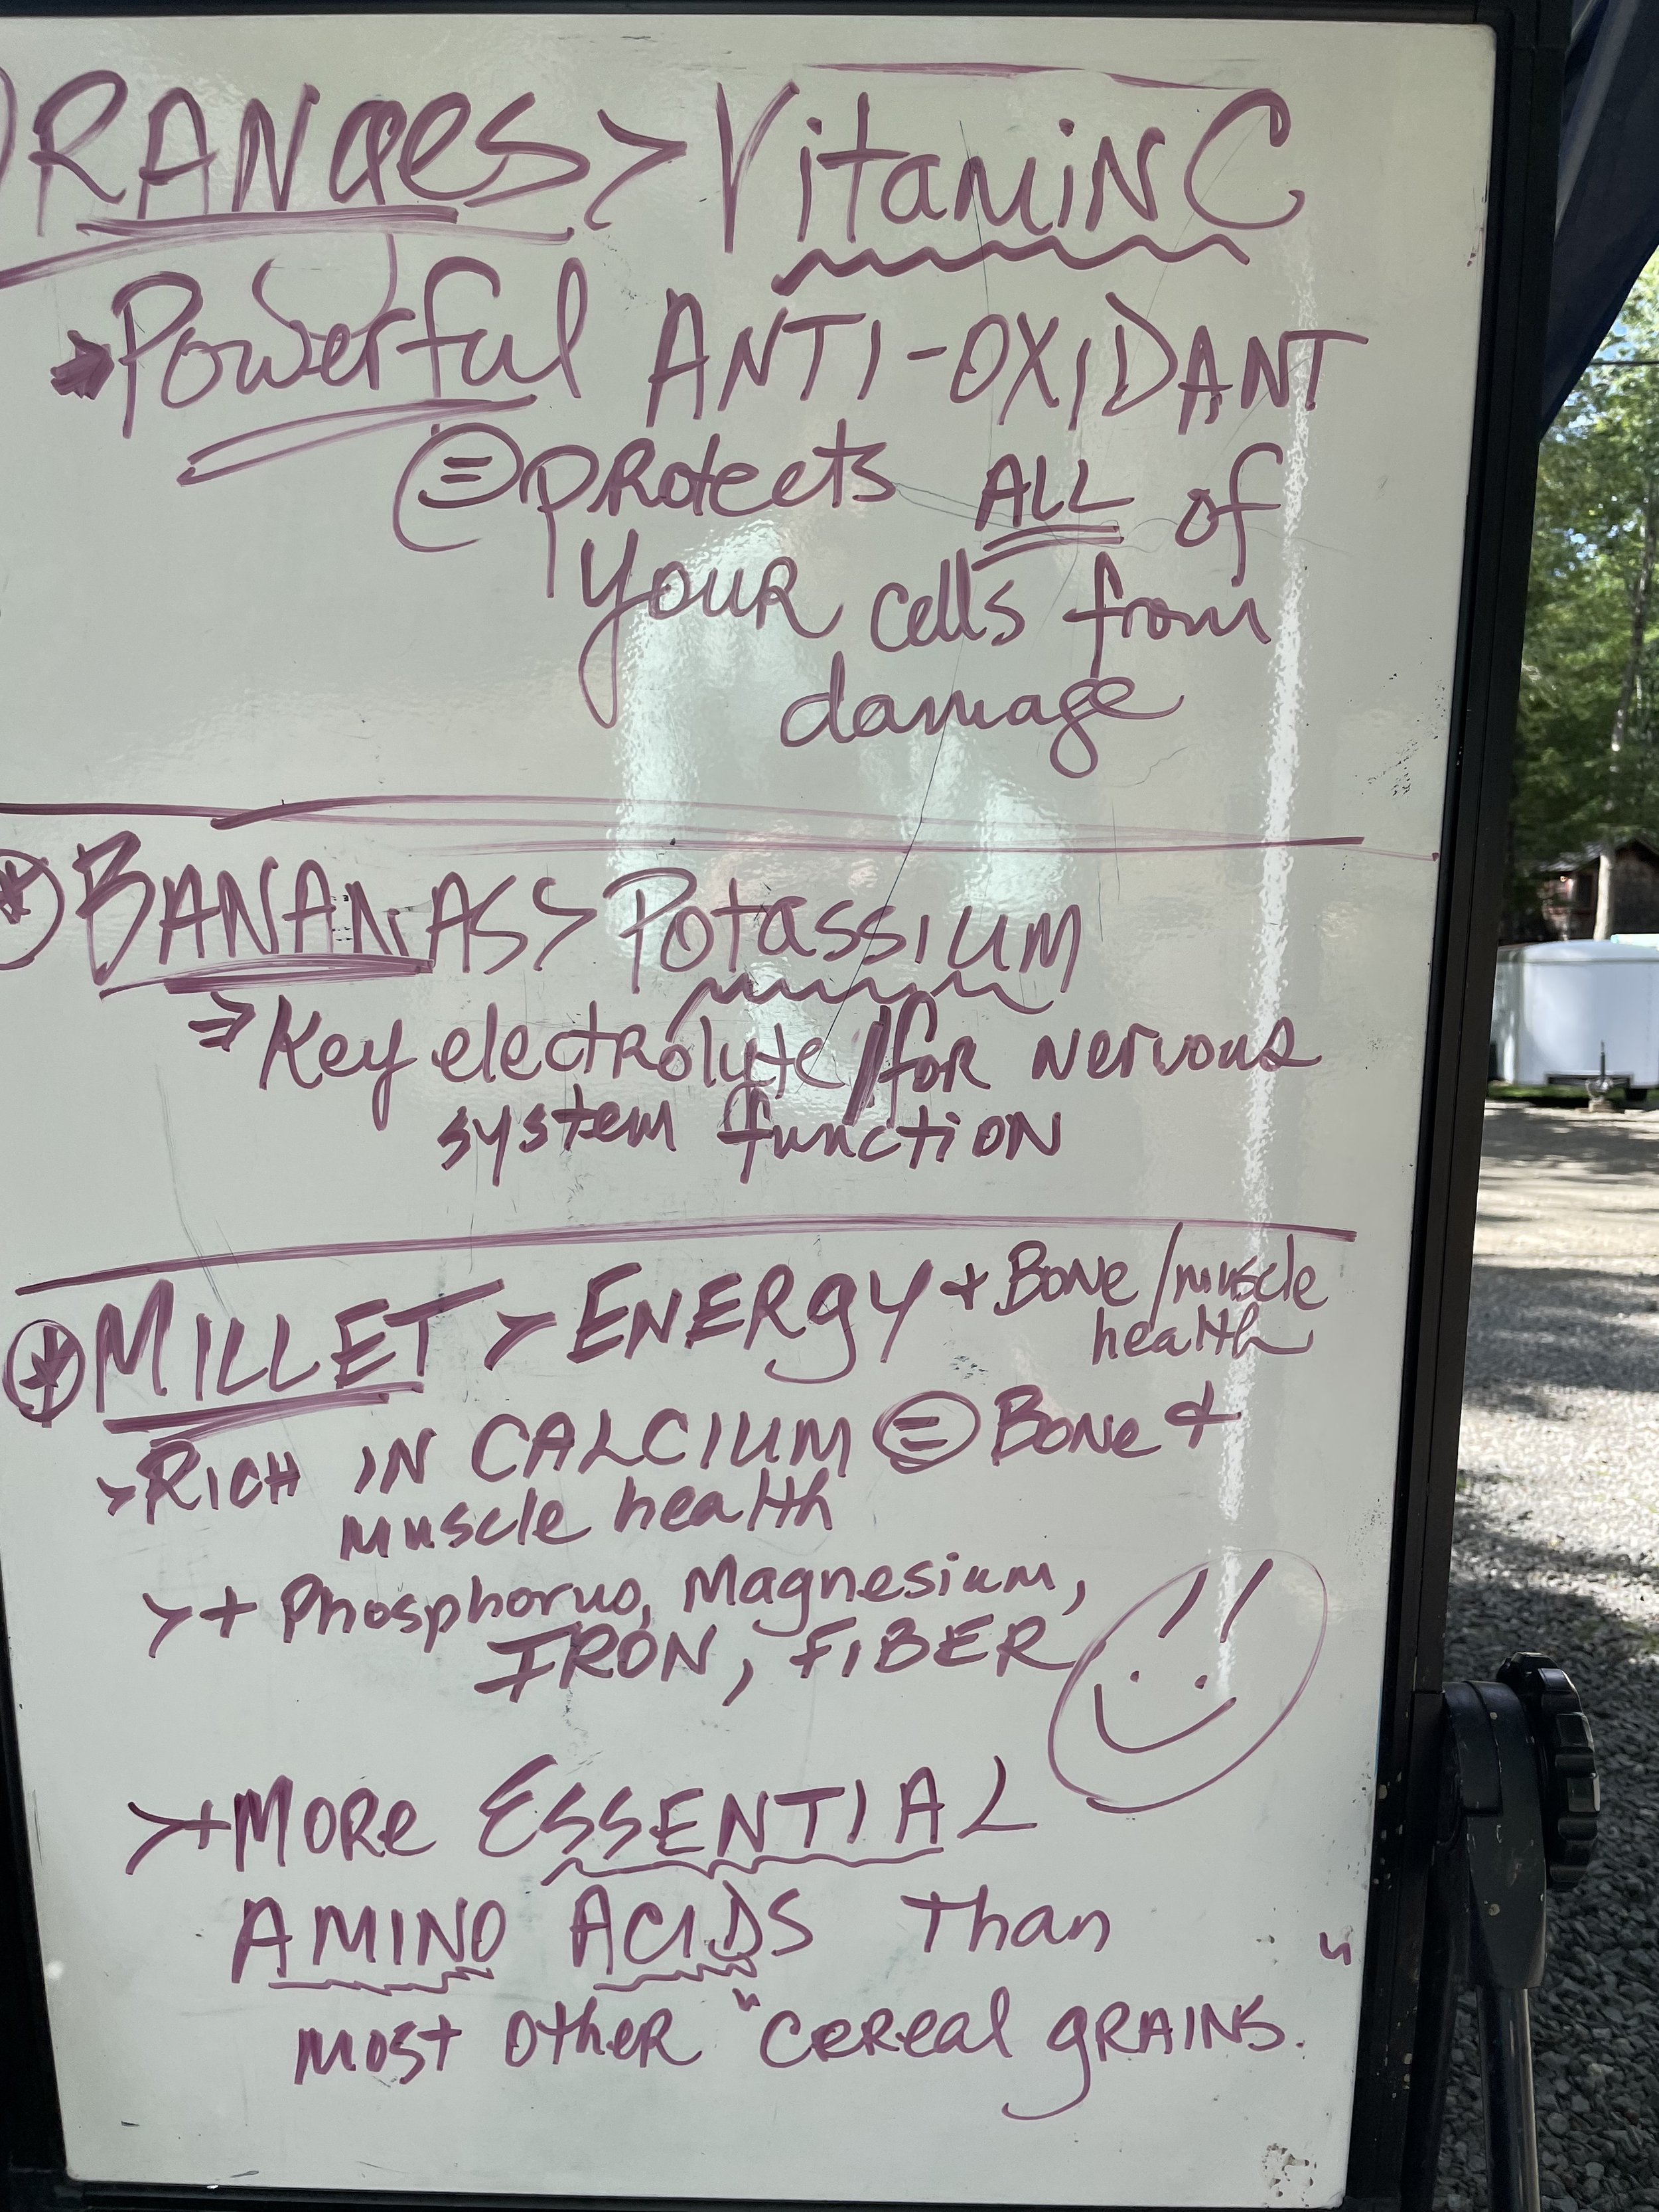 ORANGES > Vitamin C
⇒ Powerful ANTI-OXIDANT
= protects ALL of
your cells from
damage
* BANANAS > Potassium
⇒ Key electrolyte / for nervous
system function
* MILLET > ENERGY + Bone / muscle
health
> RICH IN CALCIUM = Bone +
muscle health
> + Phosphorus, Magnesium,
IRON, FIBER
> + MORE ESSENTIAL
AMINO ACIDS Than
most other "cereal grains."